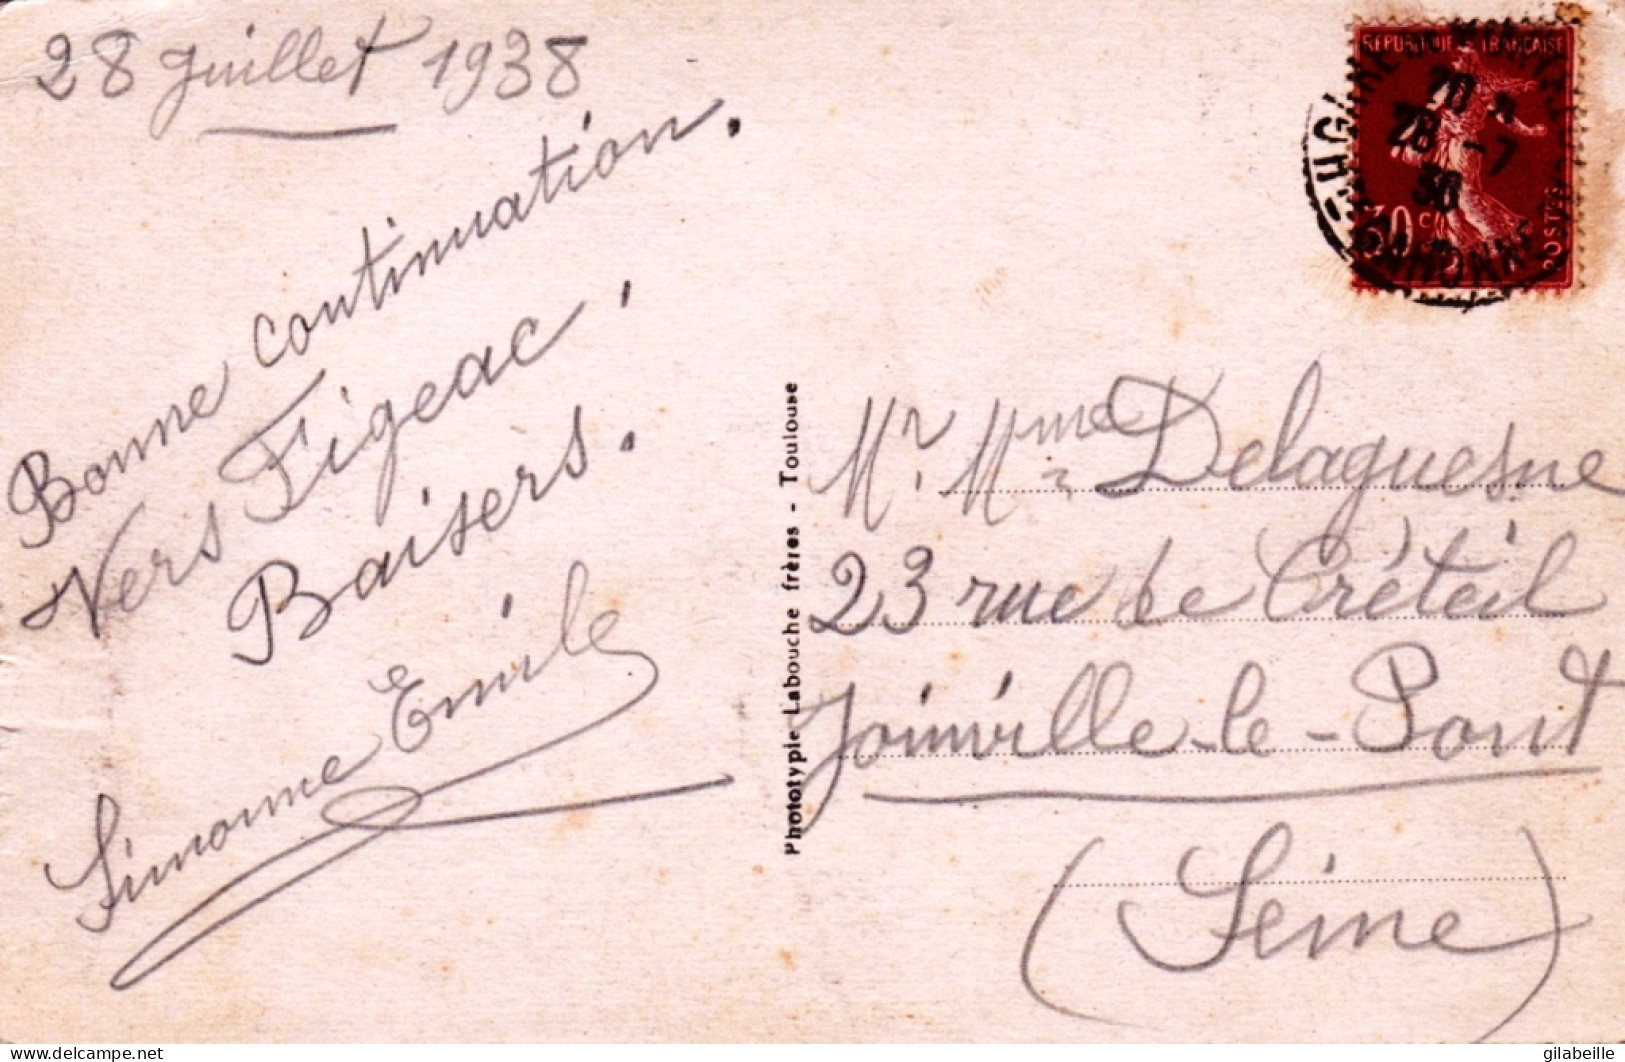 28 Juillet 1938
Bonne continuation.
Vers Figeac.
Baisers.
Simonne Emile
Phototypie Labouche frères - Toulouse
REPUBLIQUE FRANÇAISE
20
28 -7
38
30 c
POSTES
Mr. Mme Delaguesne
23 rue de Créteil
Joinville-le-Pont
(Seine)
delcampe.net
gilabeille